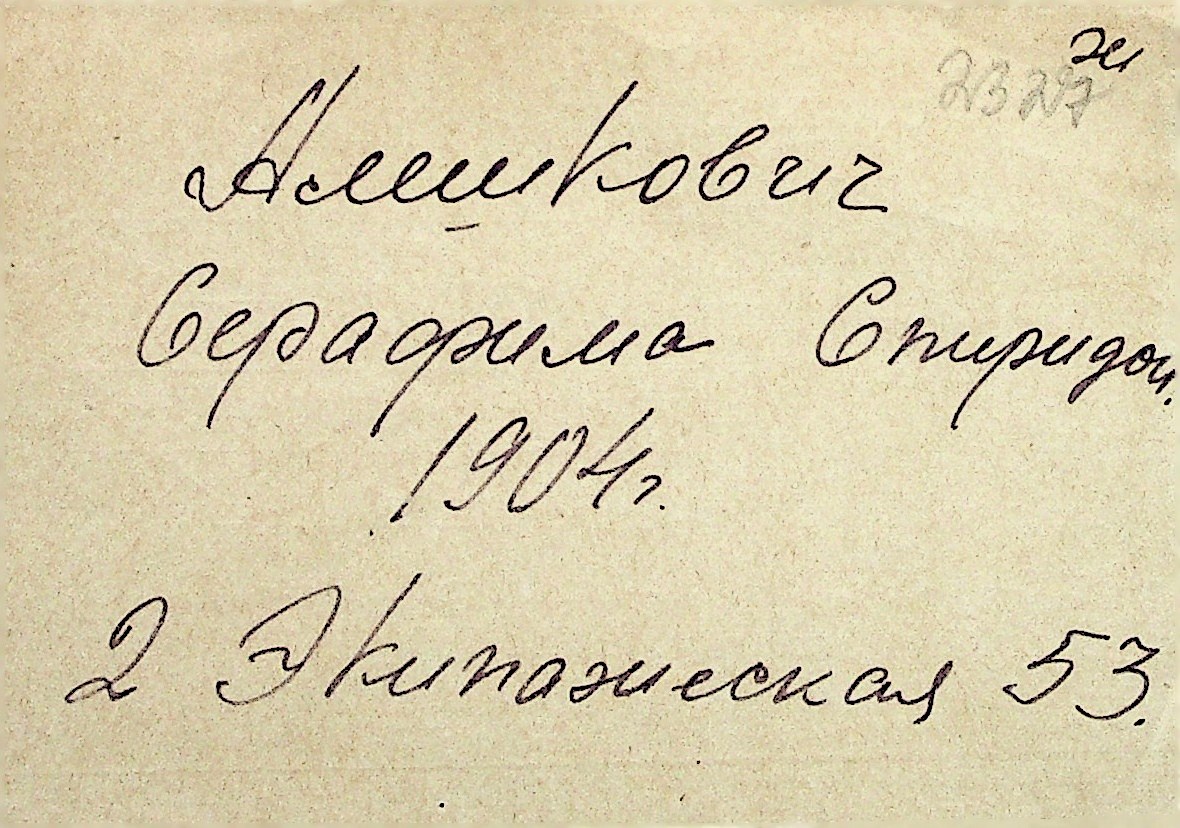 ж
2327
Алешкович
Серафима Спиридон.
1904г.
2 Экипажеская 53.